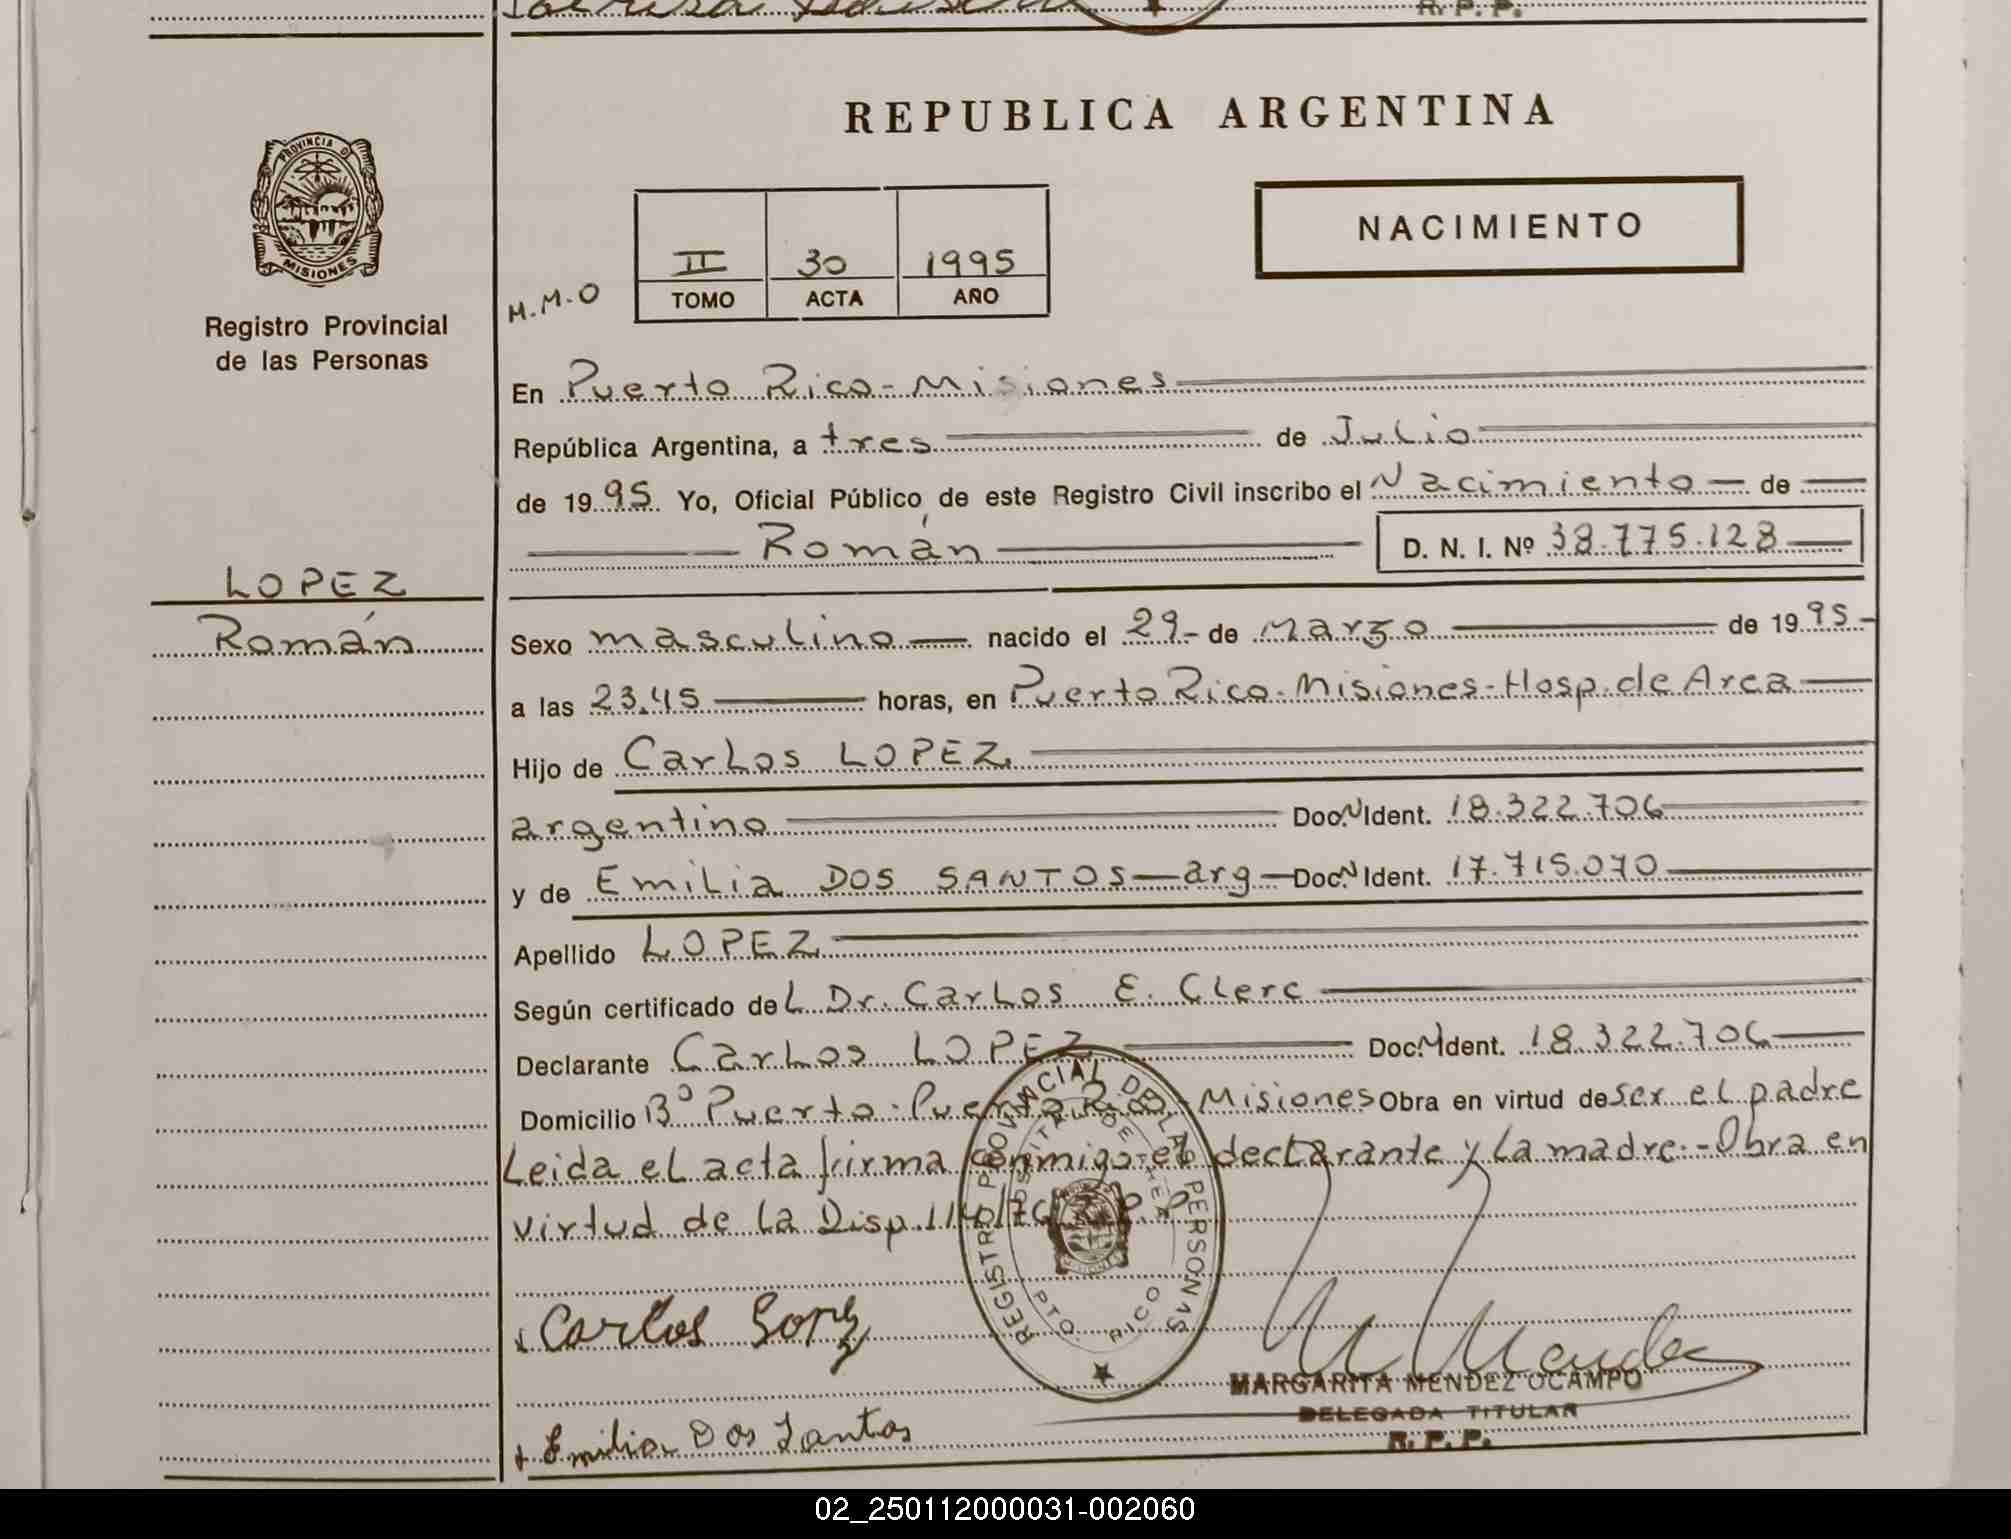 R. P. P.
REPUBLICA ARGENTINA
PROVINCIA D
MISIONES
Registro Provincial
de las Personas
NACIMIENTO
II 30 1995
TOMO ACTA AÑO
M.M.O
En Puerto Rico-Misiones
República Argentina, a tres de Julio
de 1995 Yo, Oficial Público de este Registro Civil inscribo el Nacimiento de
Román D. N. I. Nº 38.775.128
LOPEZ
Román
Sexo masculino nacido el 29 de Marzo de 1995
a las 23.45 horas, en Puerto Rico-Misiones-Hosp. de Area
Hijo de Carlos LOPEZ
argentino Doc.N Ident. 18.322.706
y de Emilia DOS SANTOS-arg-Doc.N Ident. 17.715.070
Apellido LOPEZ
Según certificado del Dr. Carlos E. Clerc
Declarante Carlos LOPEZ Doc.N Ident. 18.322.706
Domicilio Bº Puerto-Puerto Rico-Misiones Obra en virtud de ser el padre
Leida el acta firma conmigo el declarante y la madre.-Obra en
virtud de la Disp. 1140/76 R.P.P
REGISTRO PROVINCIAL DE LAS PERSONAS
PTO. RICO
Carlos Lopez
MARGARITA MENDEZ OCAMPO
DELEGADA TITULAR
R. P. P.
Emilia Dos Santos
02_250112000031-002060